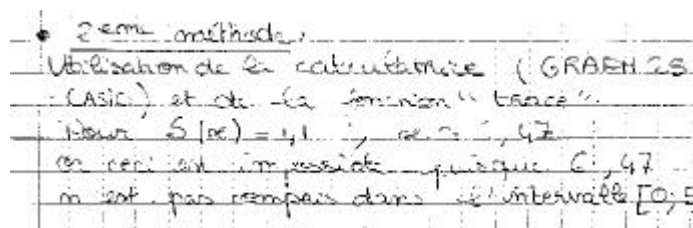 • 2ème méthode:
Utilisation de la calculatrice (GRAPH 25
CASIO) et de la fonction "trace".
Pour S(x) = 1,1 ; x ≈ 6,47
or ceci est impossible puisque 6,47
n'est pas compris dans l'intervalle [0; 5